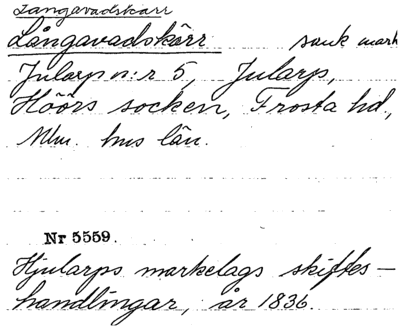 Långavadskärr
Långavadskärr sank mark
Jularp n:r 5, Jularp,
Höörs socken, Frosta hd.,
Mlm. hus län.
Nr 5559.
Hjularps markelags skiftes-
handlingar, år 1836.